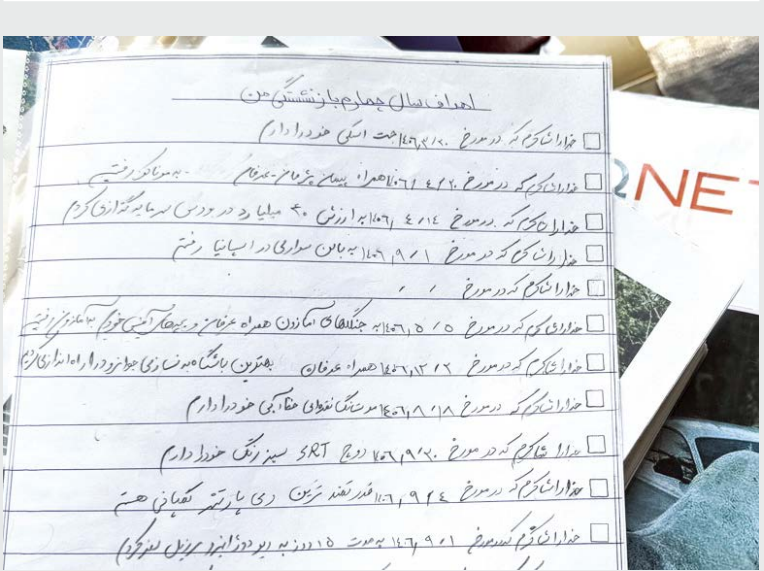 اهداف سال چهارم بازنشستگی من
خدارا شاکرم که در مورخ ۱۴۰۶/۳/۲۰ جت اسکی خود را دارم
خدارا شاکرم که در مورخ ۱۴۰۶/۴/۲۰ همراه پیمان عرفان به موناکو رفتیم
خدارا شاکرم که در مورخ ۱۴۰۶/۴/۱۴ به ارزش ۴۰ میلیارد در بورس سرمایه گذاری کردم
خدارا شاکرم که در مورخ ۱۴۰۶/۹/۱ به بالن سواری در اسپانیا رفتم
خدارا شاکرم که در مورخ / /
خدارا شاکرم که در مورخ ۱۴۰۶/۵/۵ به جنگلهای آمازون همراه عرفان و بچه‌های خودم به آمازون رفتیم
خدارا شاکرم که در مورخ ۱۴۰۶/۱۲/۲ همراه عرفان بهترین باشگاه بدنسازی را راه اندازی کردیم
خدارا شاکرم که در مورخ ۱۴۰۶/۸/۱۸ موستانگ نقره‌ای خود را دارم
خدارا شاکرم که در مورخ ۱۴۰۶/۹/۳۰ دوج SRT سبز رنگ خود را دارم
خدارا شاکرم که در مورخ ۱۴۰۶/۹/۴ قدرتمند ترین وی پارتنر کمپانی هستم
خدارا شاکرم که در مورخ ۱۴۰۶/۹/۱ به مدت ۱۵ روز به ریو دوژانیرو برزیل سفر کردم
QNET